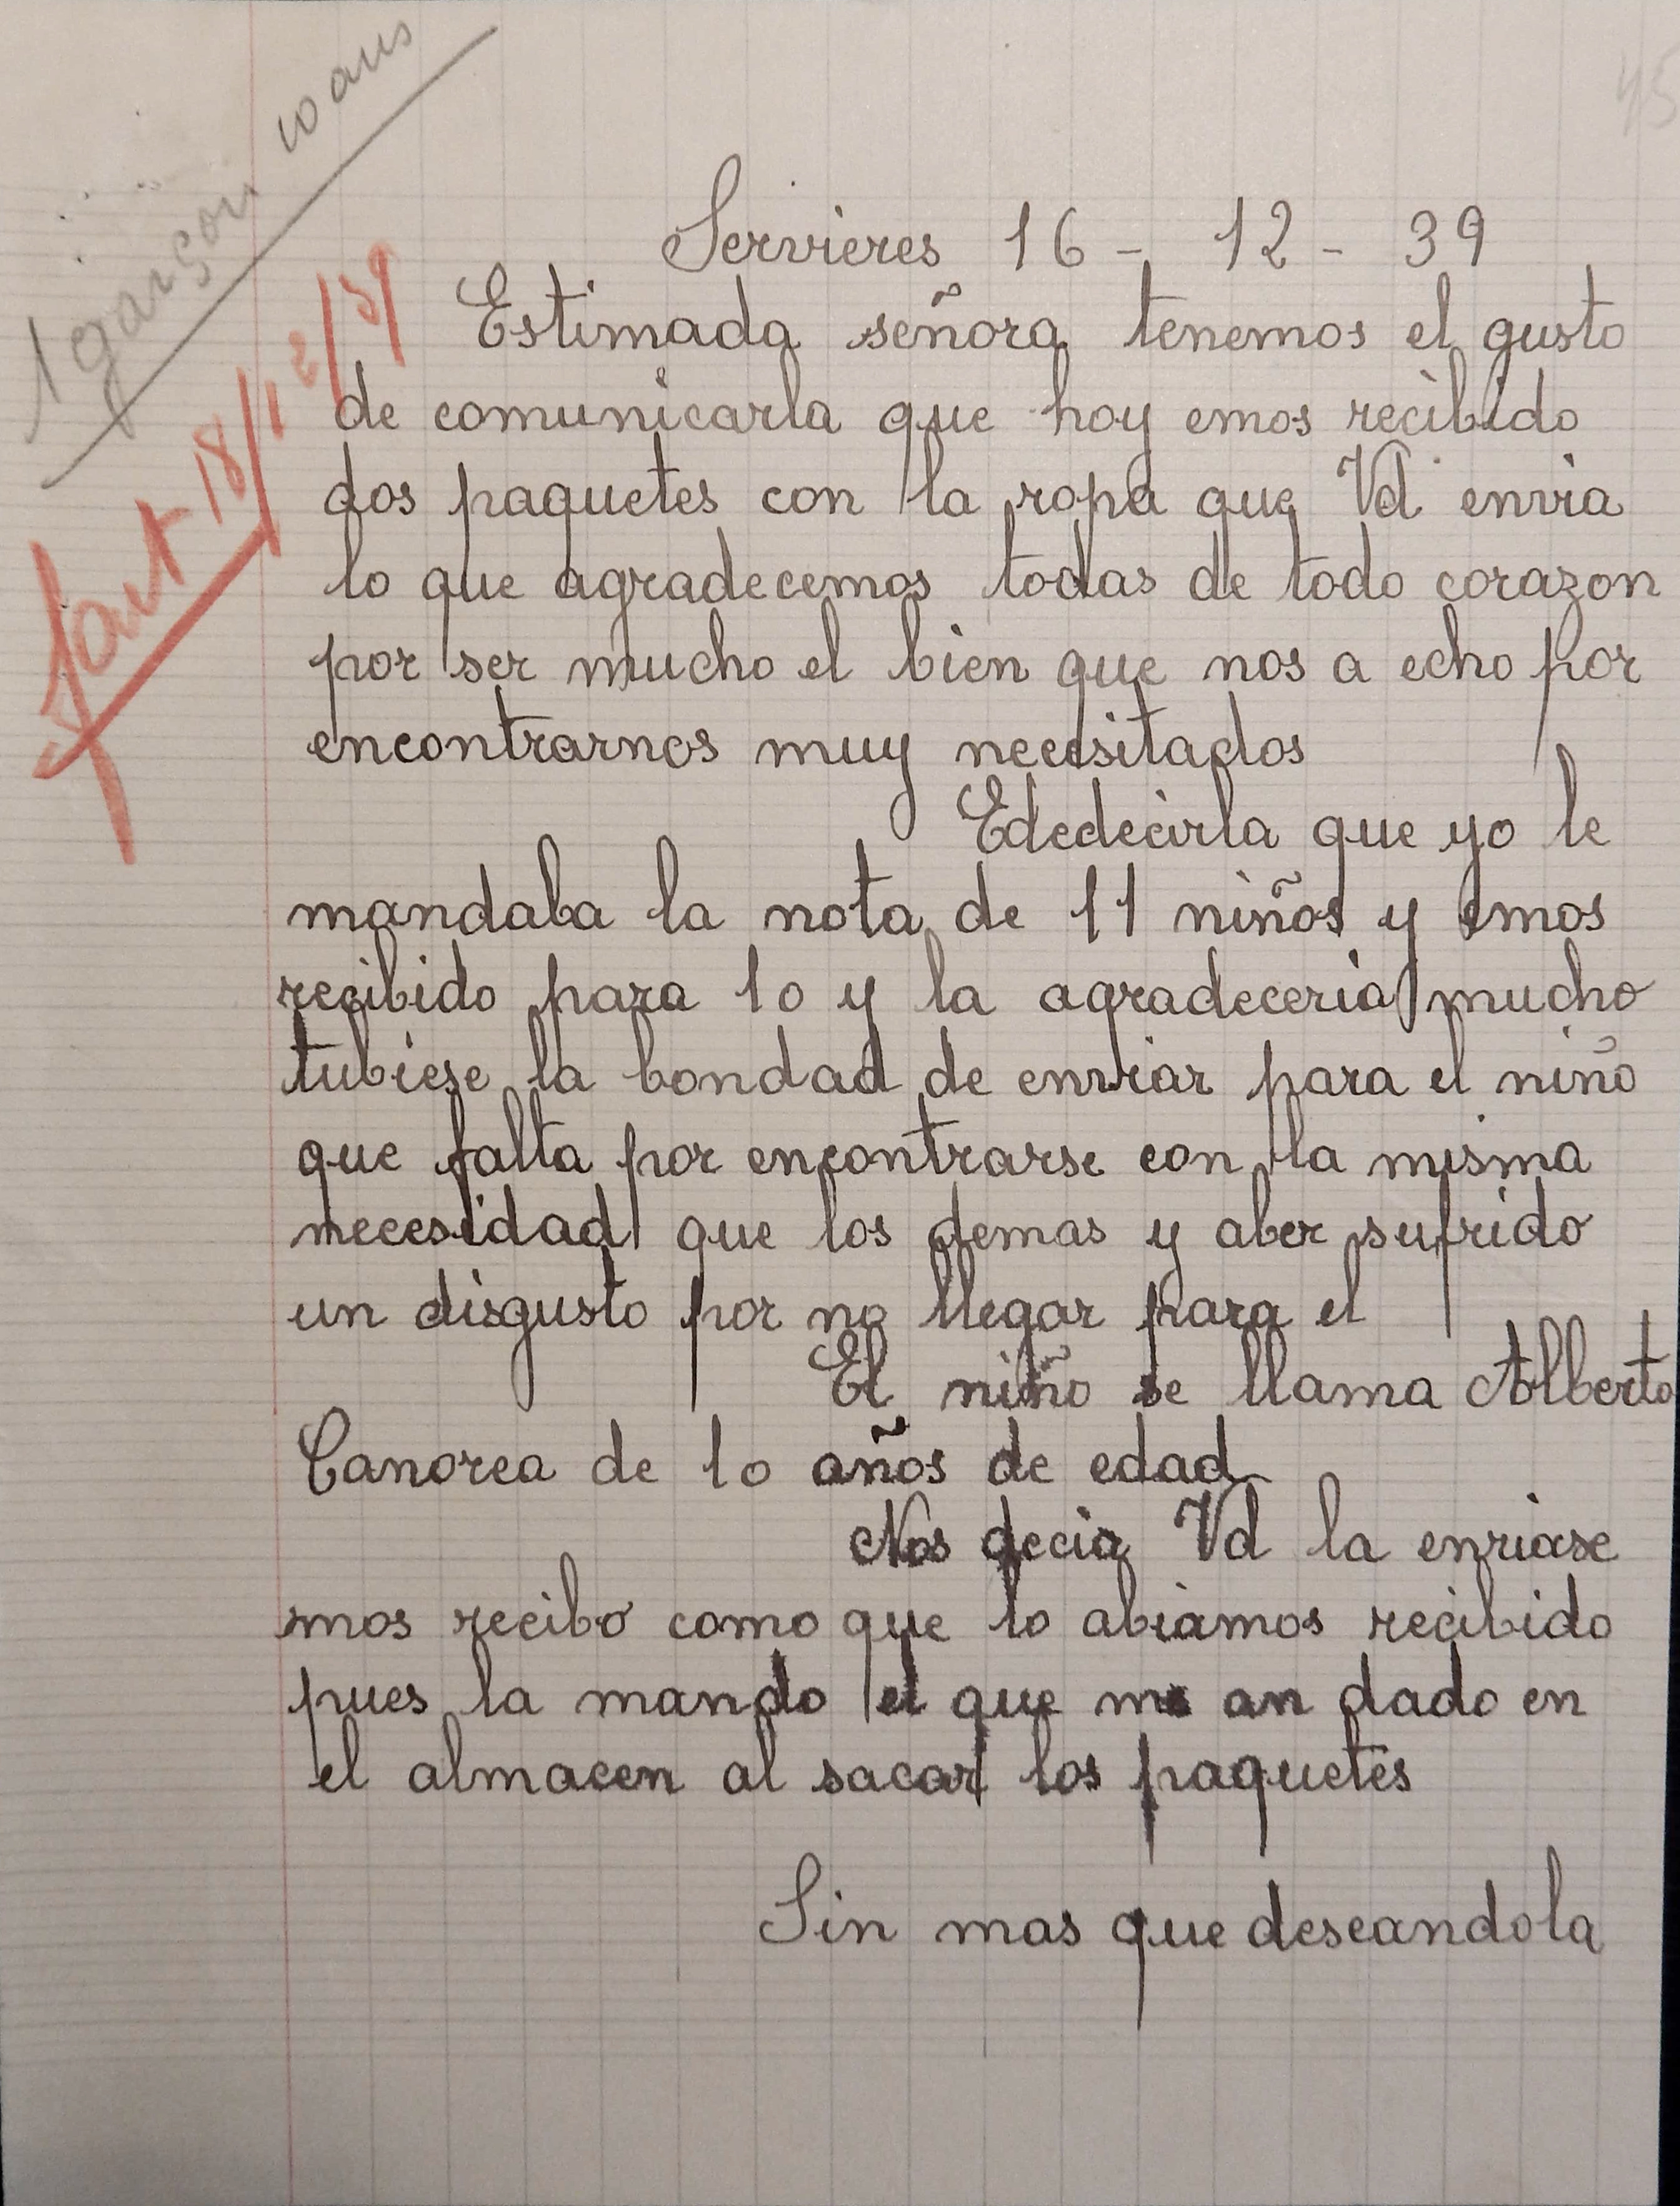 1 garçon 10 ans
fait 18/12/39
45
Servieres 16 - 12 - 39
Estimada señora tenemos el gusto
de comunicarla que hoy emos recibido
dos paquetes con la ropa que Vd envia
lo que agradecemos todas de todo corazon
por ser mucho el bien que nos a echo por
encontrarnos muy necesitados
Ededecirla que yo le
mandaba la nota de 11 niños y emos
recibido para 10 y la agradeceria mucho
tubiese la bondad de enviar para el niño
que falta por encontrarse con la misma
necesidad que los demas y aber sufrido
un disgusto por no llegar para el
El niño se llama Alberto
Canorea de 10 años de edad
Nos decia Vd la enviase
mos recibo como que lo abiamos recibido
pues la mando el que me an dado en
el almacen al sacar los paquetes
Sin mas que deseandola